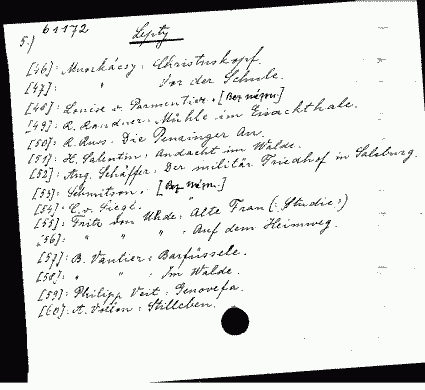 5.) 61172 Lepty
[46]: Munkácsy: Christuskopf.
[47]: " Vor der Schule.
[48]: Louise v. Parmentier. [Bez názvu.]
[49]: R. Mühle im Eisackthale.
[50]: R. Russ. Die Penzinger Au.
[51]: H. Salentin: Andacht im Walde.
[52]: Aug. Schäffer: Der militär Friedhof in Salzburg.
[53]: Schmitson: [Bez názvu.]
[54]: C. v. Siegl. "
[55]: Fritz von Uhde: Alte Frau (: Studie :)
[56]: " " " Auf dem Heimweg.
[57]: B. Vautier: Barfüssele.
[58]: " " Im Walde.
[59]: Philipp Veit: Genovefa.
[60]: A. Stilleben.